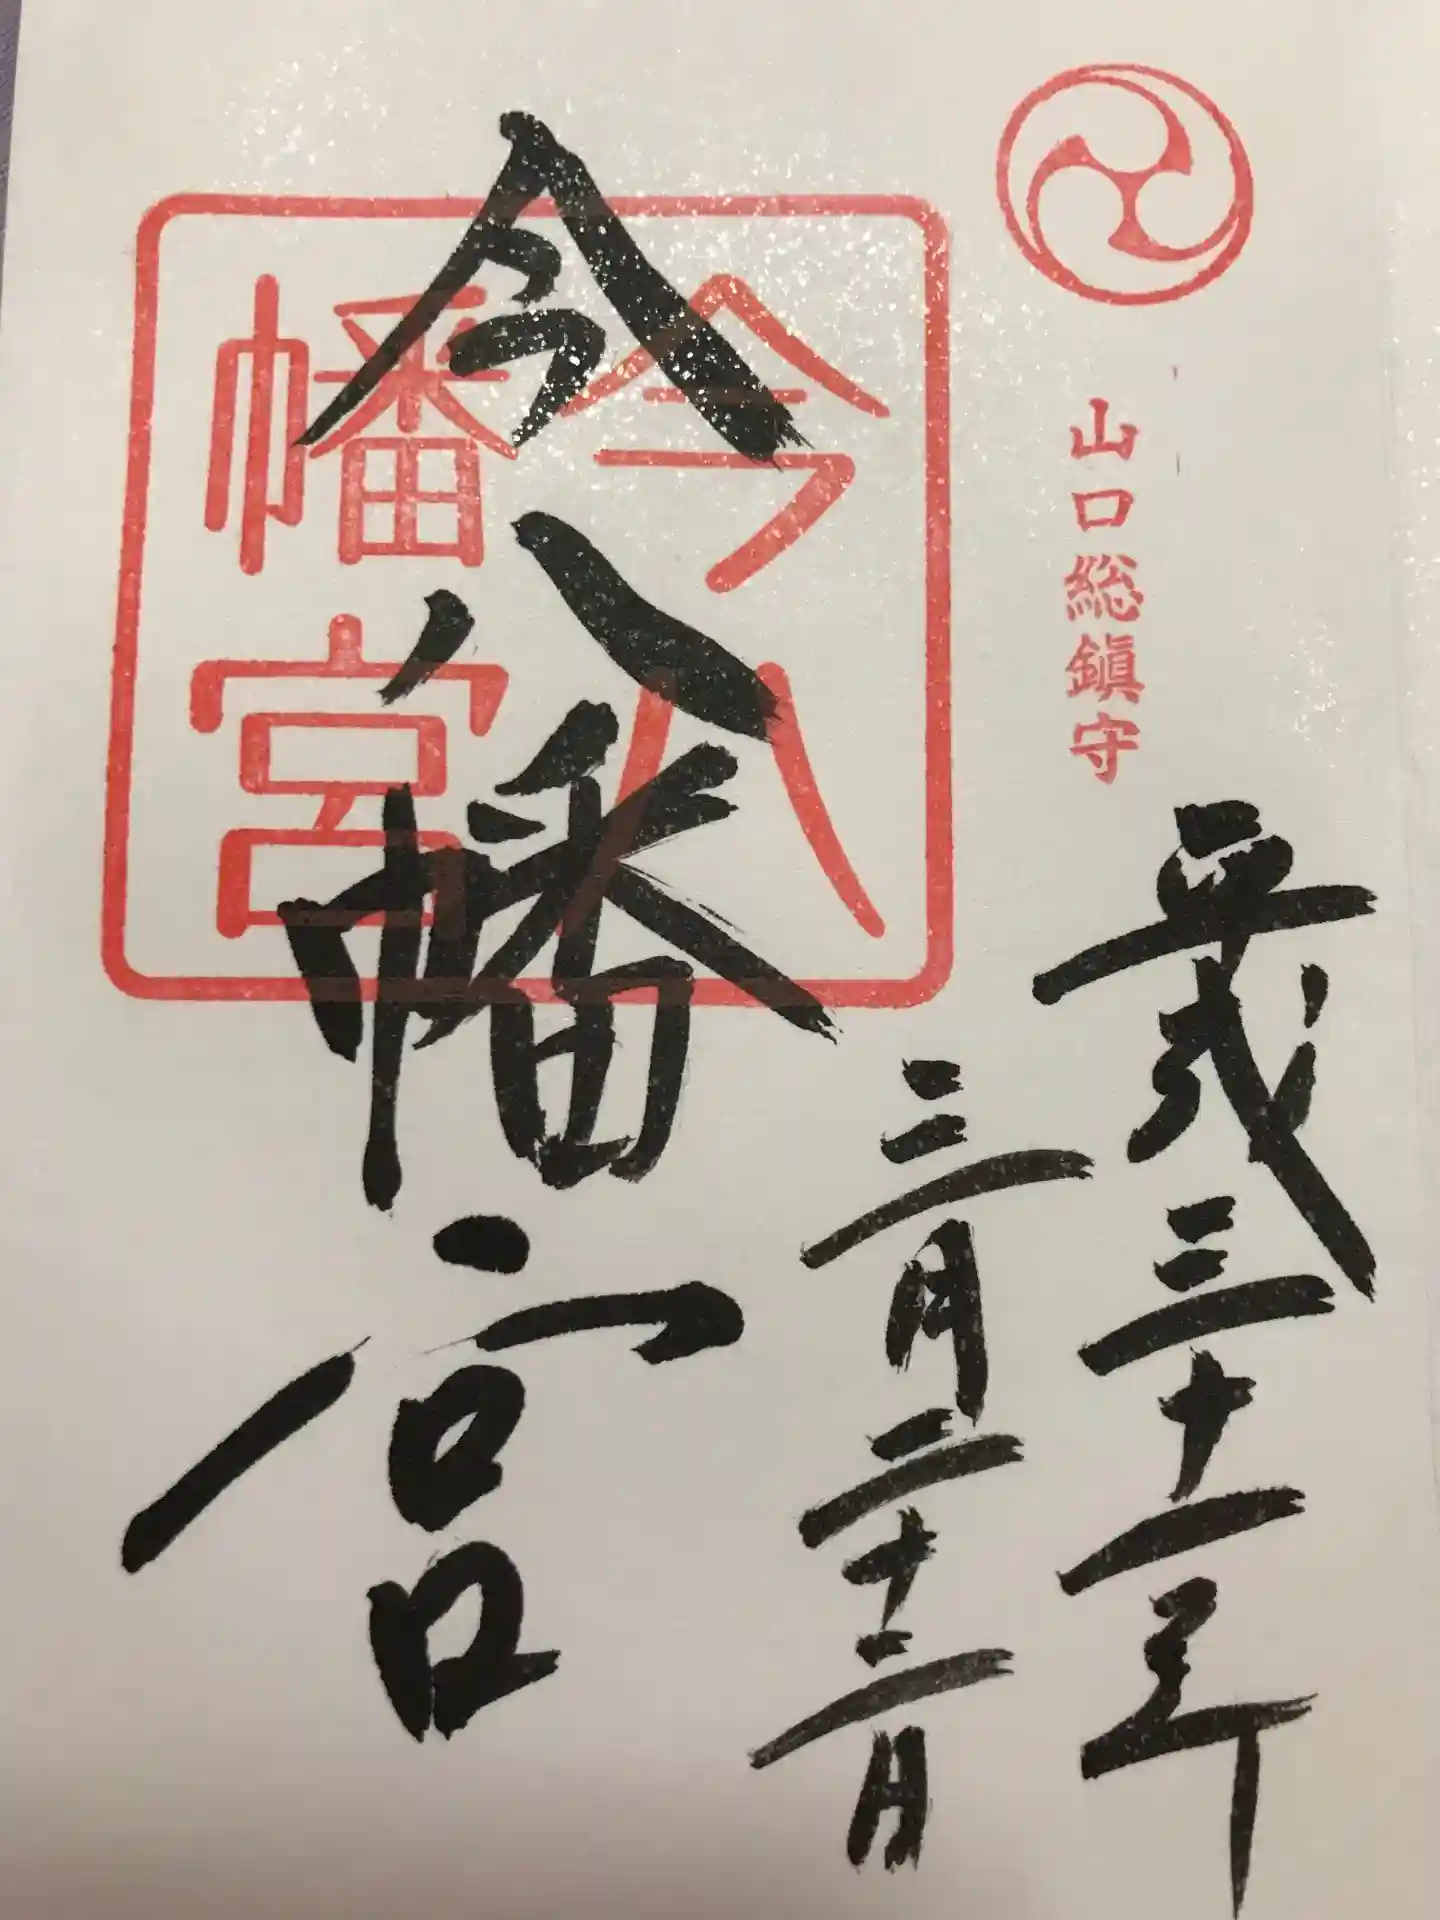 山口総鎮守
平成三十一年
三月二十二日
今八幡宮
今八
幡宮